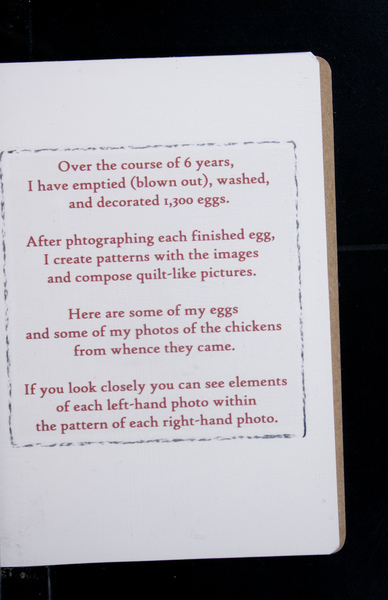 Over the course of 6 years,
I have emptied (blown out), washed,
and decorated 1,300 eggs.
After phtographing each finished egg,
I create patterns with the images
and compose quilt-like pictures.
Here are some of my eggs
and some of my photos of the chickens
from whence they came.
If you look closely you can see elements
of each left-hand photo within
the pattern of each right-hand photo.